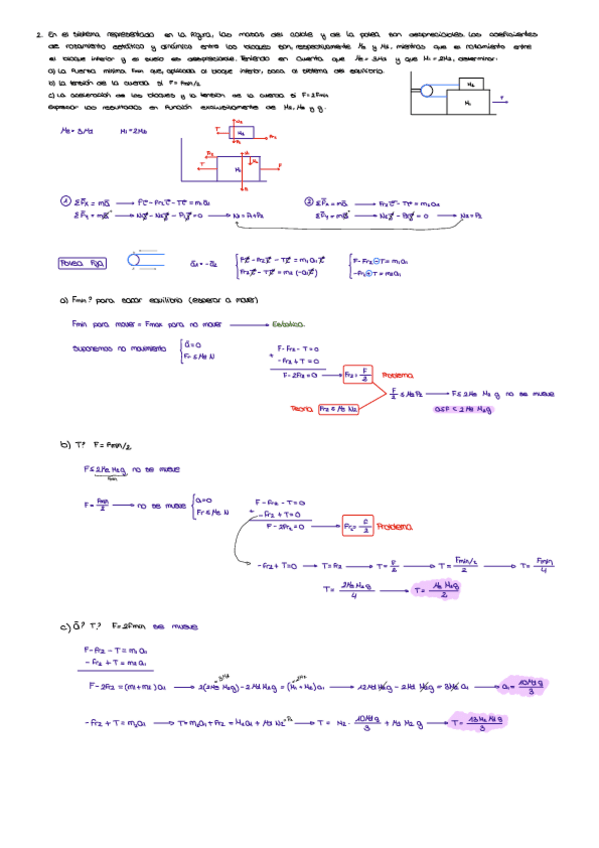 2. En el sistema representado en la figura, las masas del cable y de la polea son despreciables. Los coeficientes
de rozamiento estático y dinámico entre los bloques son, respectivamente μe y μd, mientras que el rozamiento entre
el bloque inferior y el suelo es despreciable. Teniendo en cuenta que μe = 3μd y que M1 = 2M2, determinar:
a) La fuerza mínima Fmin que, aplicada al bloque inferior, saca al sistema del equilibrio.
b) La tensión de la cuerda si F = Fmin/2
c) La aceleración de los bloques y la tensión de la cuerda si F = 2Fmin
expresar los resultados en función exclusivamente de M2, μd y g.
M2
M1
F
μe = 3μd M1 = 2M2
T M2
T M1 F
① ΣFx = ma → F - Fr2 - T = m1a1
② ΣFx = ma → Fr2 - T = m2a2
Polea Fija
a1 = -a2
F - Fr2 - T = m1a1
-Fr2 + T = m2a1
a) Fmin? para sacar equilibrio (empezar a mover)
Fmin para mover = Fmax para no mover → Estática.
Suponemos no movimiento
a = 0
Fr ≤ μe N
F - Fr2 - T = 0
-Fr2 + T = 0
F - 2Fr2 = 0 → Fr2 = F/2 Problema
Teoría Fr2 ≤ μe N2
F/2 ≤ μe P2 → F ≤ 2μe M2 g no se mueve
b) T? F = Fmin/2
F ≤ 2μe M2 g no se mueve
Fmin
F = Fmin/2 → no se mueve
a = 0
Fr ≤ μe N
F - Fr2 - T = 0
-Fr2 + T = 0
F - 2Fr2 = 0 → Fr2 = F/2 Problema
-Fr2 + T = 0 → T = Fr2 → T = F/2 → T = Fmin/2 / 2 → T = Fmin/4
T = 2μe M2 g / 4 → T = μe M2 g / 2
c) a? T? F = 2Fmin se mueve
F - Fr2 - T = m1a1
-Fr2 + T = m2a1
F - 2Fr2 = (m1 + m2)a1 → 2(2μe M2 g) - 2μd M2 g = (M1 + M2)a1 → 12μd M2 g - 2μd M2 g = 3M2 a1 → a1 = 10μd g / 3
-Fr2 + T = m2a1 → T = m2a1 + Fr2 = M2a1 + μd N2 → T = M2 · 10μd g / 3 + μd M2 g → T = 13M2 μd g / 3